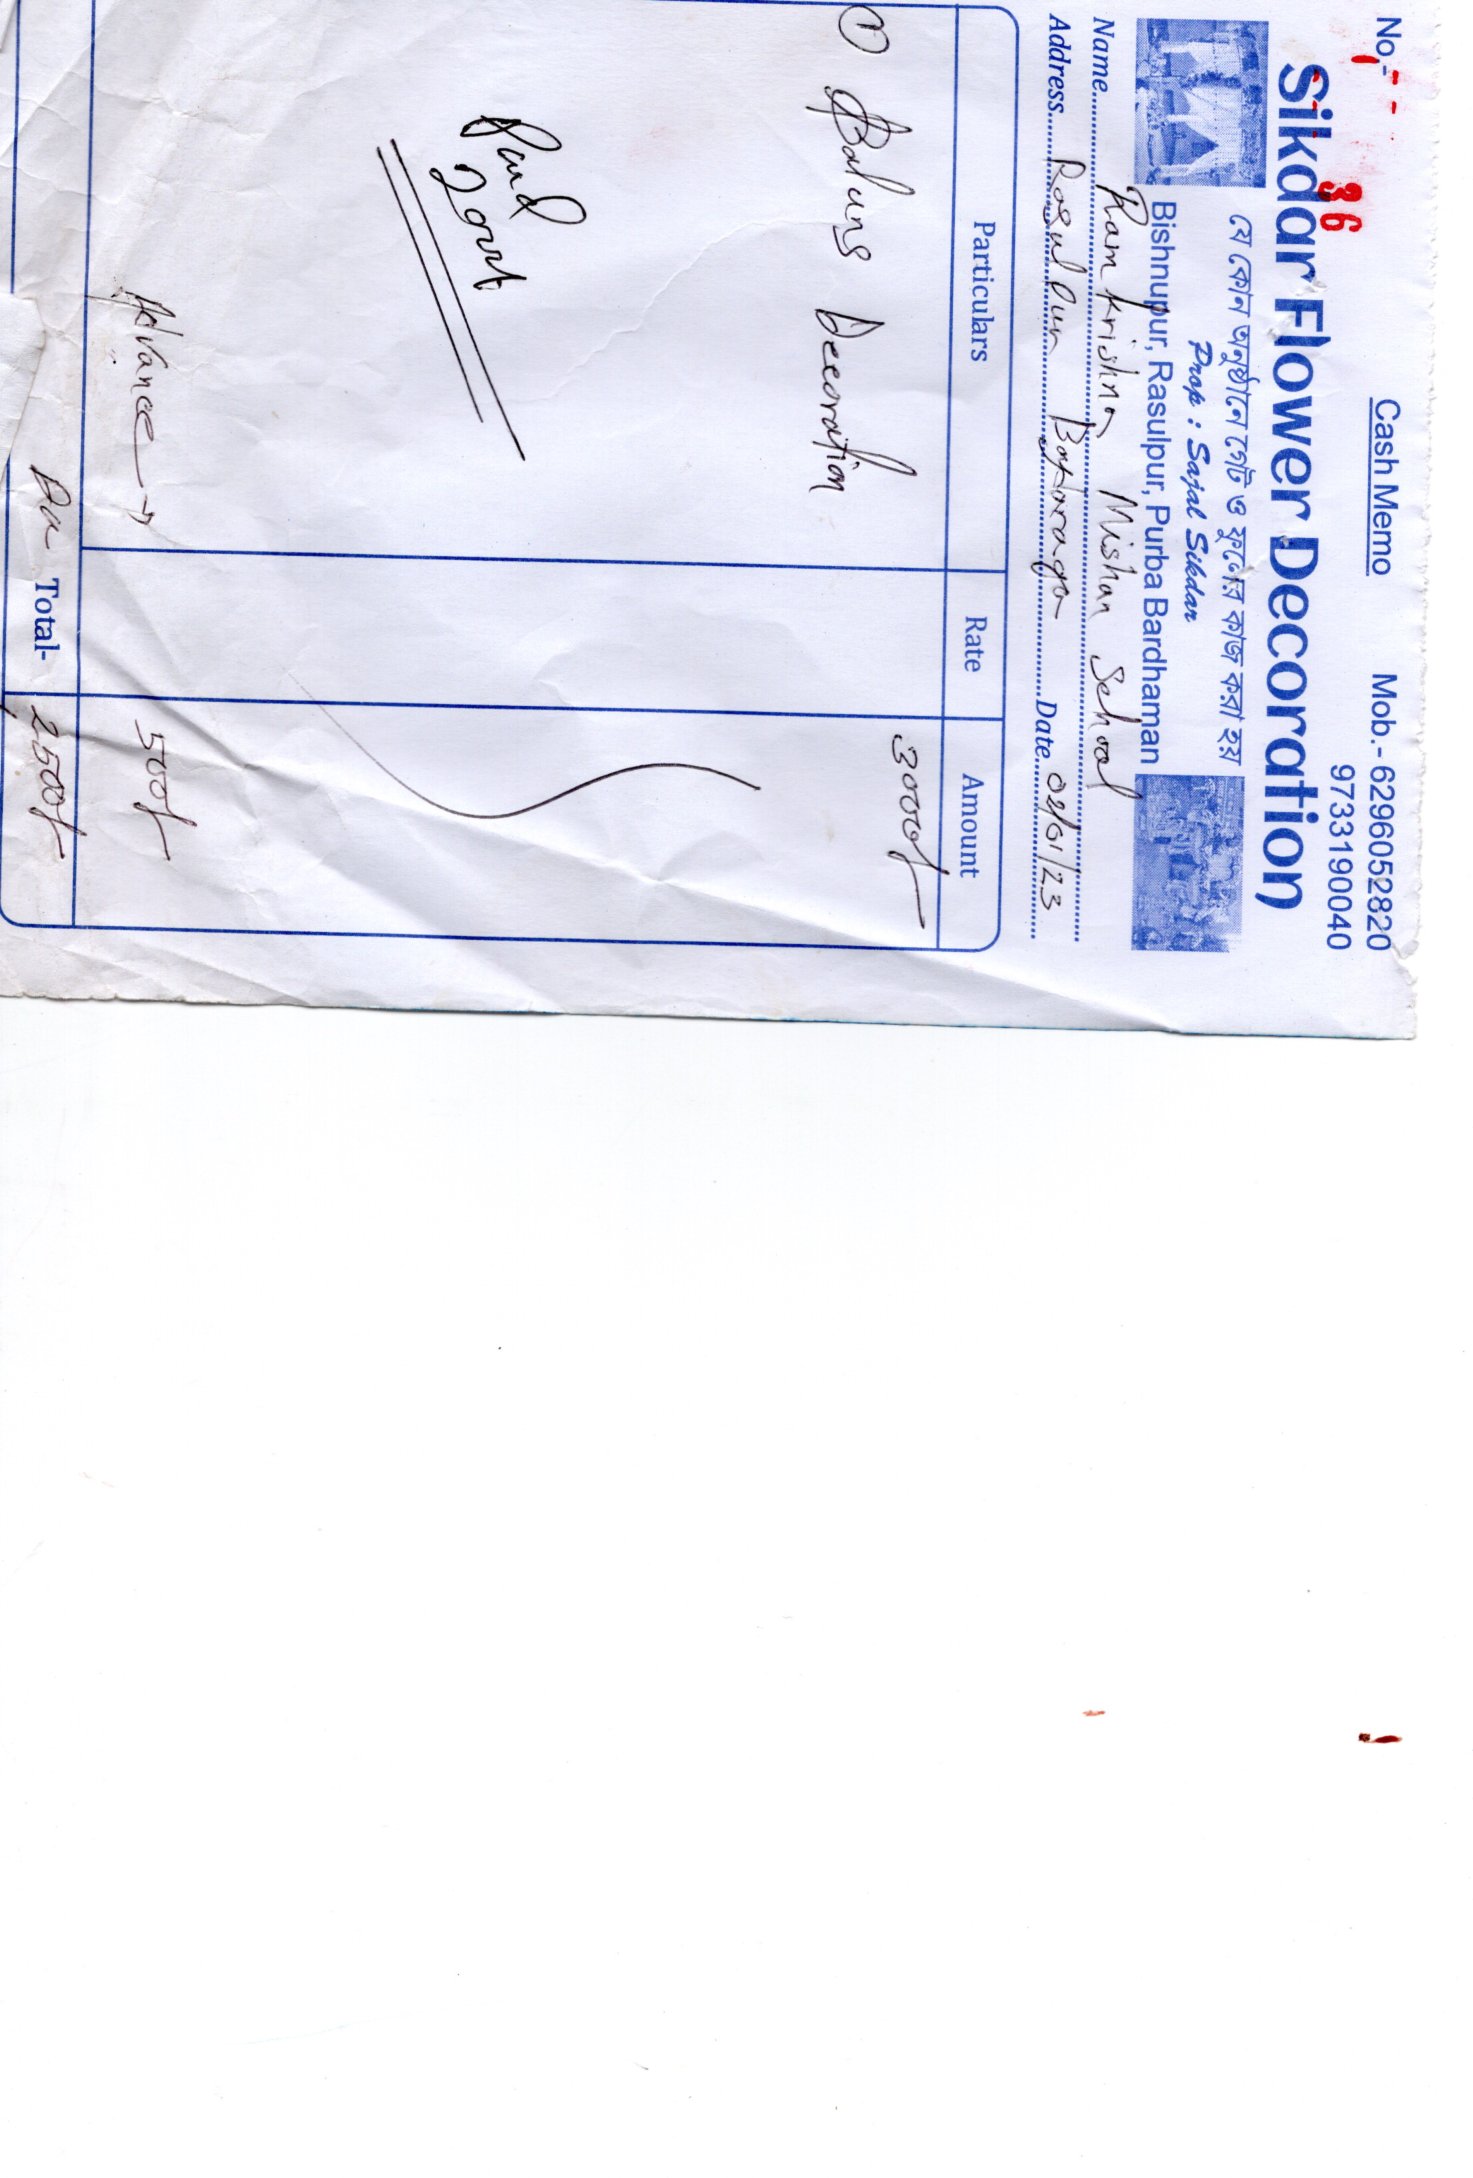 No.- Cash Memo Mob.- 6296052820
36 9733190040
Sikdar Flower Decoration
যে কোন অনুষ্ঠানে গেট ও ফুলের কাজ করা হয়
Prop : Sajal Sikdar
Bishnupur, Rasulpur, Purba Bardhaman
Name Ram Krishna Mishan School
Address Rosulpur Date 02/01/23
Particulars Rate Amount
① Baluns Decoration 3000/-
Paid
Advance → 500/-
Du Total- 2500/-